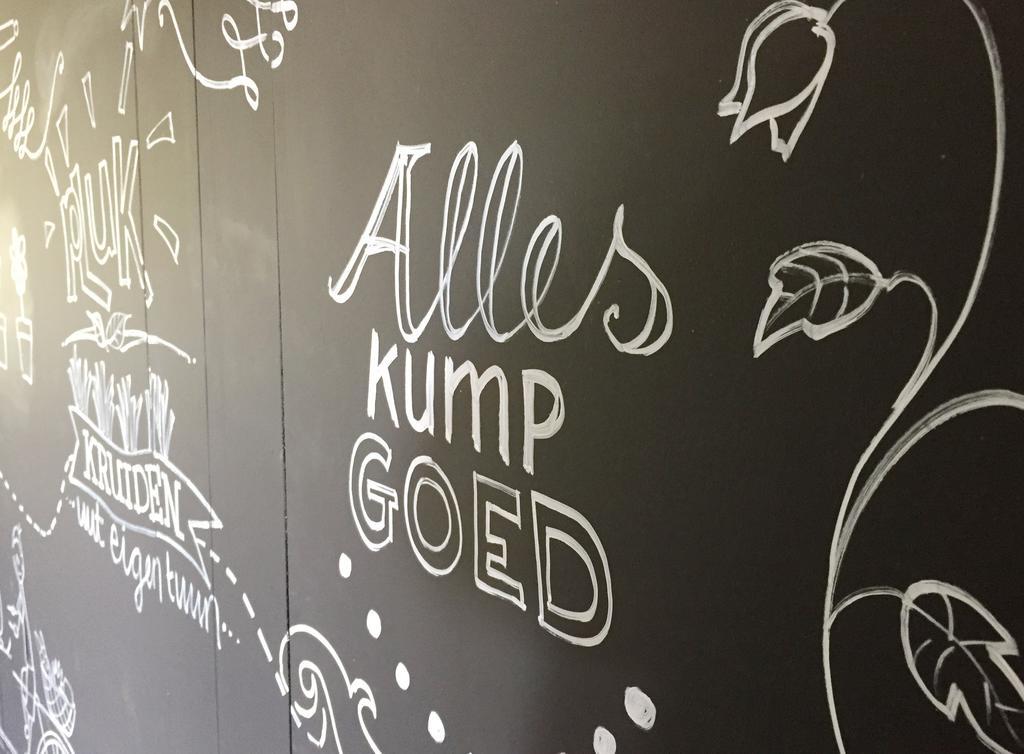 PLUK
KRUIDEN
uit eigen tuin...
Alles
KUMP
GOED